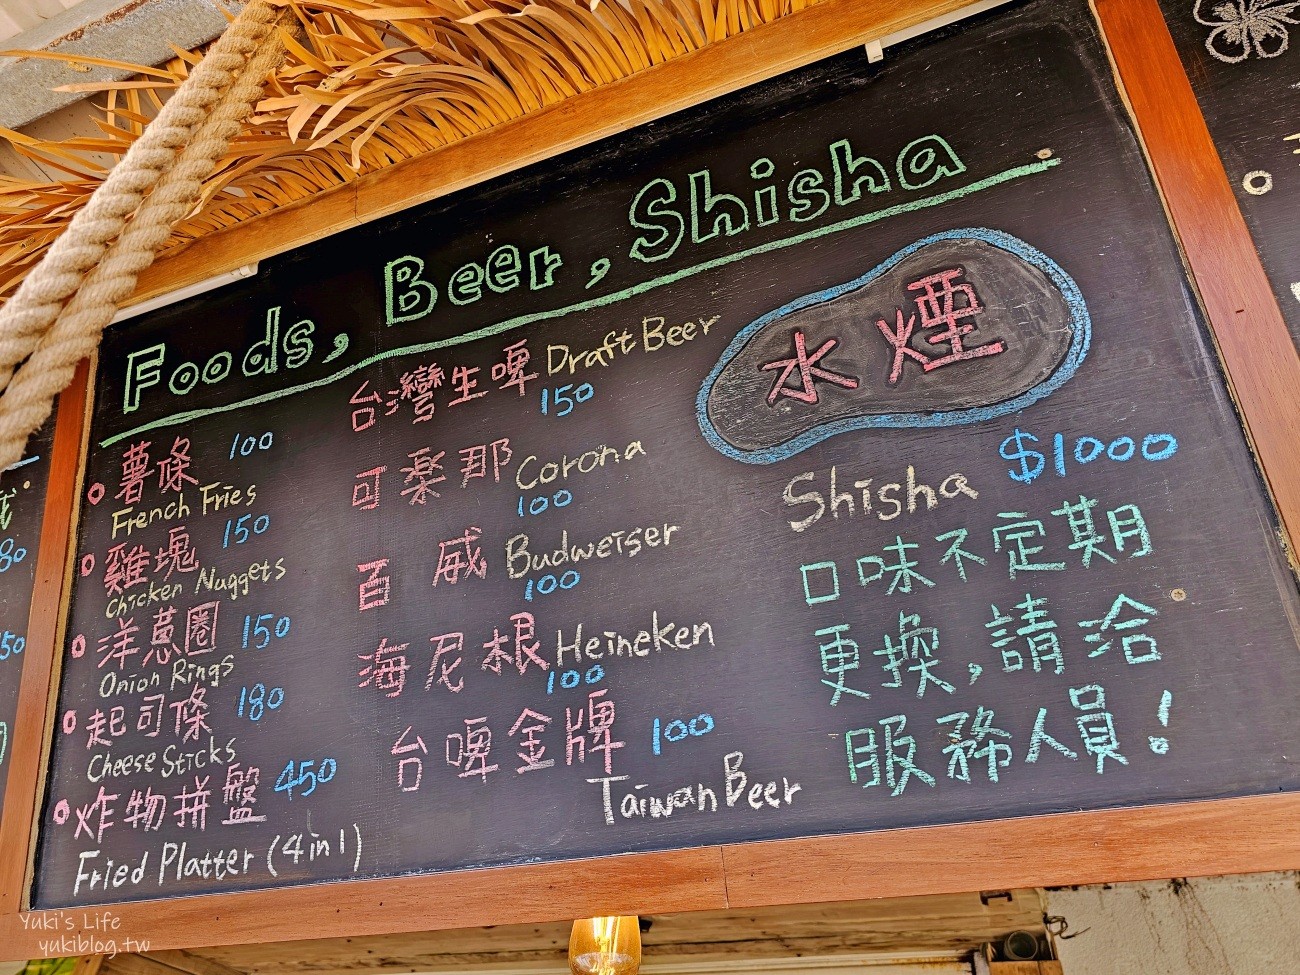 Foods, Beer, Shisha
薯條 100
French Fries
雞塊 150
Chicken Nuggets
洋蔥圈 150
Onion Rings
起司條 180
Cheese Sticks
炸物拼盤 450
Fried Platter (4 in 1)
台灣生啤 Draft Beer
150
可楽那 Corona
100
百威 Budweiser
100
海尼根 Heineken
100
台啤金牌 100
Taiwan Beer
水煙
Shisha $1000
口味不定期
更換,請洽
服務人員!
80
50
Yuki's Life
yukiblog.tw